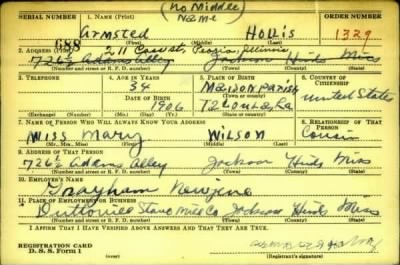 (No Middle
Name)
SERIAL NUMBER 1. NAME (Print) ORDER NUMBER
688 Armsted Hollis 1329
(First) (Middle) (Last)
2. ADDRESS (Print) 211 St, Peoria, Illinois
726½ Adams Alley Jackson Hinds Miss
(Number and street or R. F. D. number) (Town) (County) (State)
3. TELEPHONE 4. AGE IN YEARS 5. PLACE OF BIRTH 6. COUNTRY OF CITIZENSHIP
34 Madison Parish
DATE OF BIRTH (Town or county)
1906 La United States
(Exchange) (Number) (Mo.) (Day) (Yr.) (State or country)
7. NAME OF PERSON WHO WILL ALWAYS KNOW YOUR ADDRESS 8. RELATIONSHIP OF THAT PERSON
Miss Mary Wilson Cousin
(Mr., Mrs., Miss) (First) (Middle) (Last)
9. ADDRESS OF THAT PERSON
726½ Adams Alley Jackson Hinds Miss
(Number and street or R. F. D. number) (Town) (County) (State)
10. EMPLOYER'S NAME
Grayham
11. PLACE OF EMPLOYMENT OR BUSINESS
Stave Mill Co. Jackson Hinds Miss
(Number and street or R. F. D. number) (Town) (County) (State)
I AFFIRM THAT I HAVE VERIFIED ABOVE ANSWERS AND THAT THEY ARE TRUE.
REGISTRATION CARD
D. S. S. Form 1 (Registrant's signature)